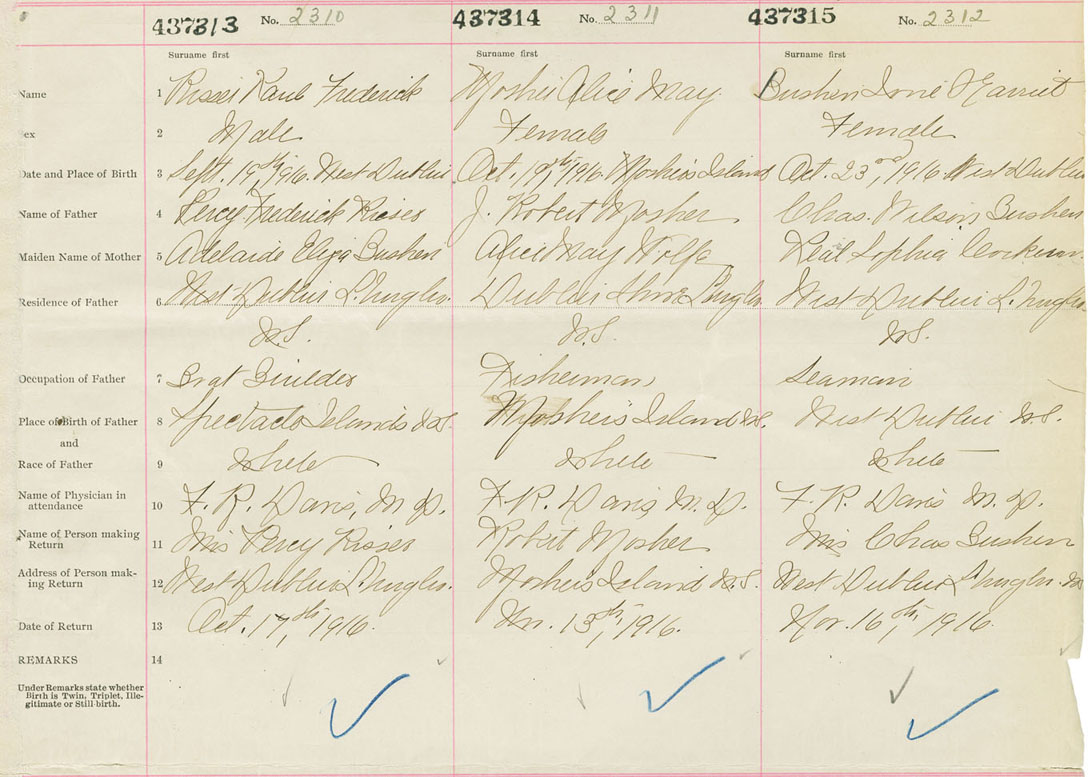 437313 No. 2310 437314 No. 2311 437315 No. 2312
Surname first Surname first Surname first
Name 1 Risser Paul Frederick Mosher Alice May Bushen Irvie Harriet
ex 2 Male Female Female
Date and Place of Birth 3 Sept. 19th, 1916. West Dublin Oct. 19th, 1916 Mosher's Island Oct. 23rd, 1916 West Dublin
Name of Father 4 Percy Frederick Risser J. Robert Mosher Chas. Wilson Bushen
Maiden Name of Mother 5 Adelaide Eliza Bushen Alice May Wolfe Sophia
Residence of Father 6 West Dublin Dublin Shore West Dublin
N.S. N.S. N.S.
Occupation of Father 7 Boat Builder Fisherman Seaman
Place of Birth of Father 8 Spectacle Islands N.S. Mosher's Island N.S. West Dublin N.S.
and
Race of Father 9 White White White
Name of Physician in
attendance 10 F. R. Davis, M.D. F. R. Davis M.D. F. R. Davis M.D.
Name of Person making
Return 11 Mrs Percy Risser Robert Mosher Mrs Chas Bushen
Address of Person mak-
ing Return 12 West Dublin Mosher's Island N.S. West Dublin
Date of Return 13 Oct. 17th, 1916. Nov. 13th, 1916. Nov. 16th, 1916.
REMARKS 14
Under Remarks state whether
Birth is Twin, Triplet, Ille-
gitimate or Still-birth.